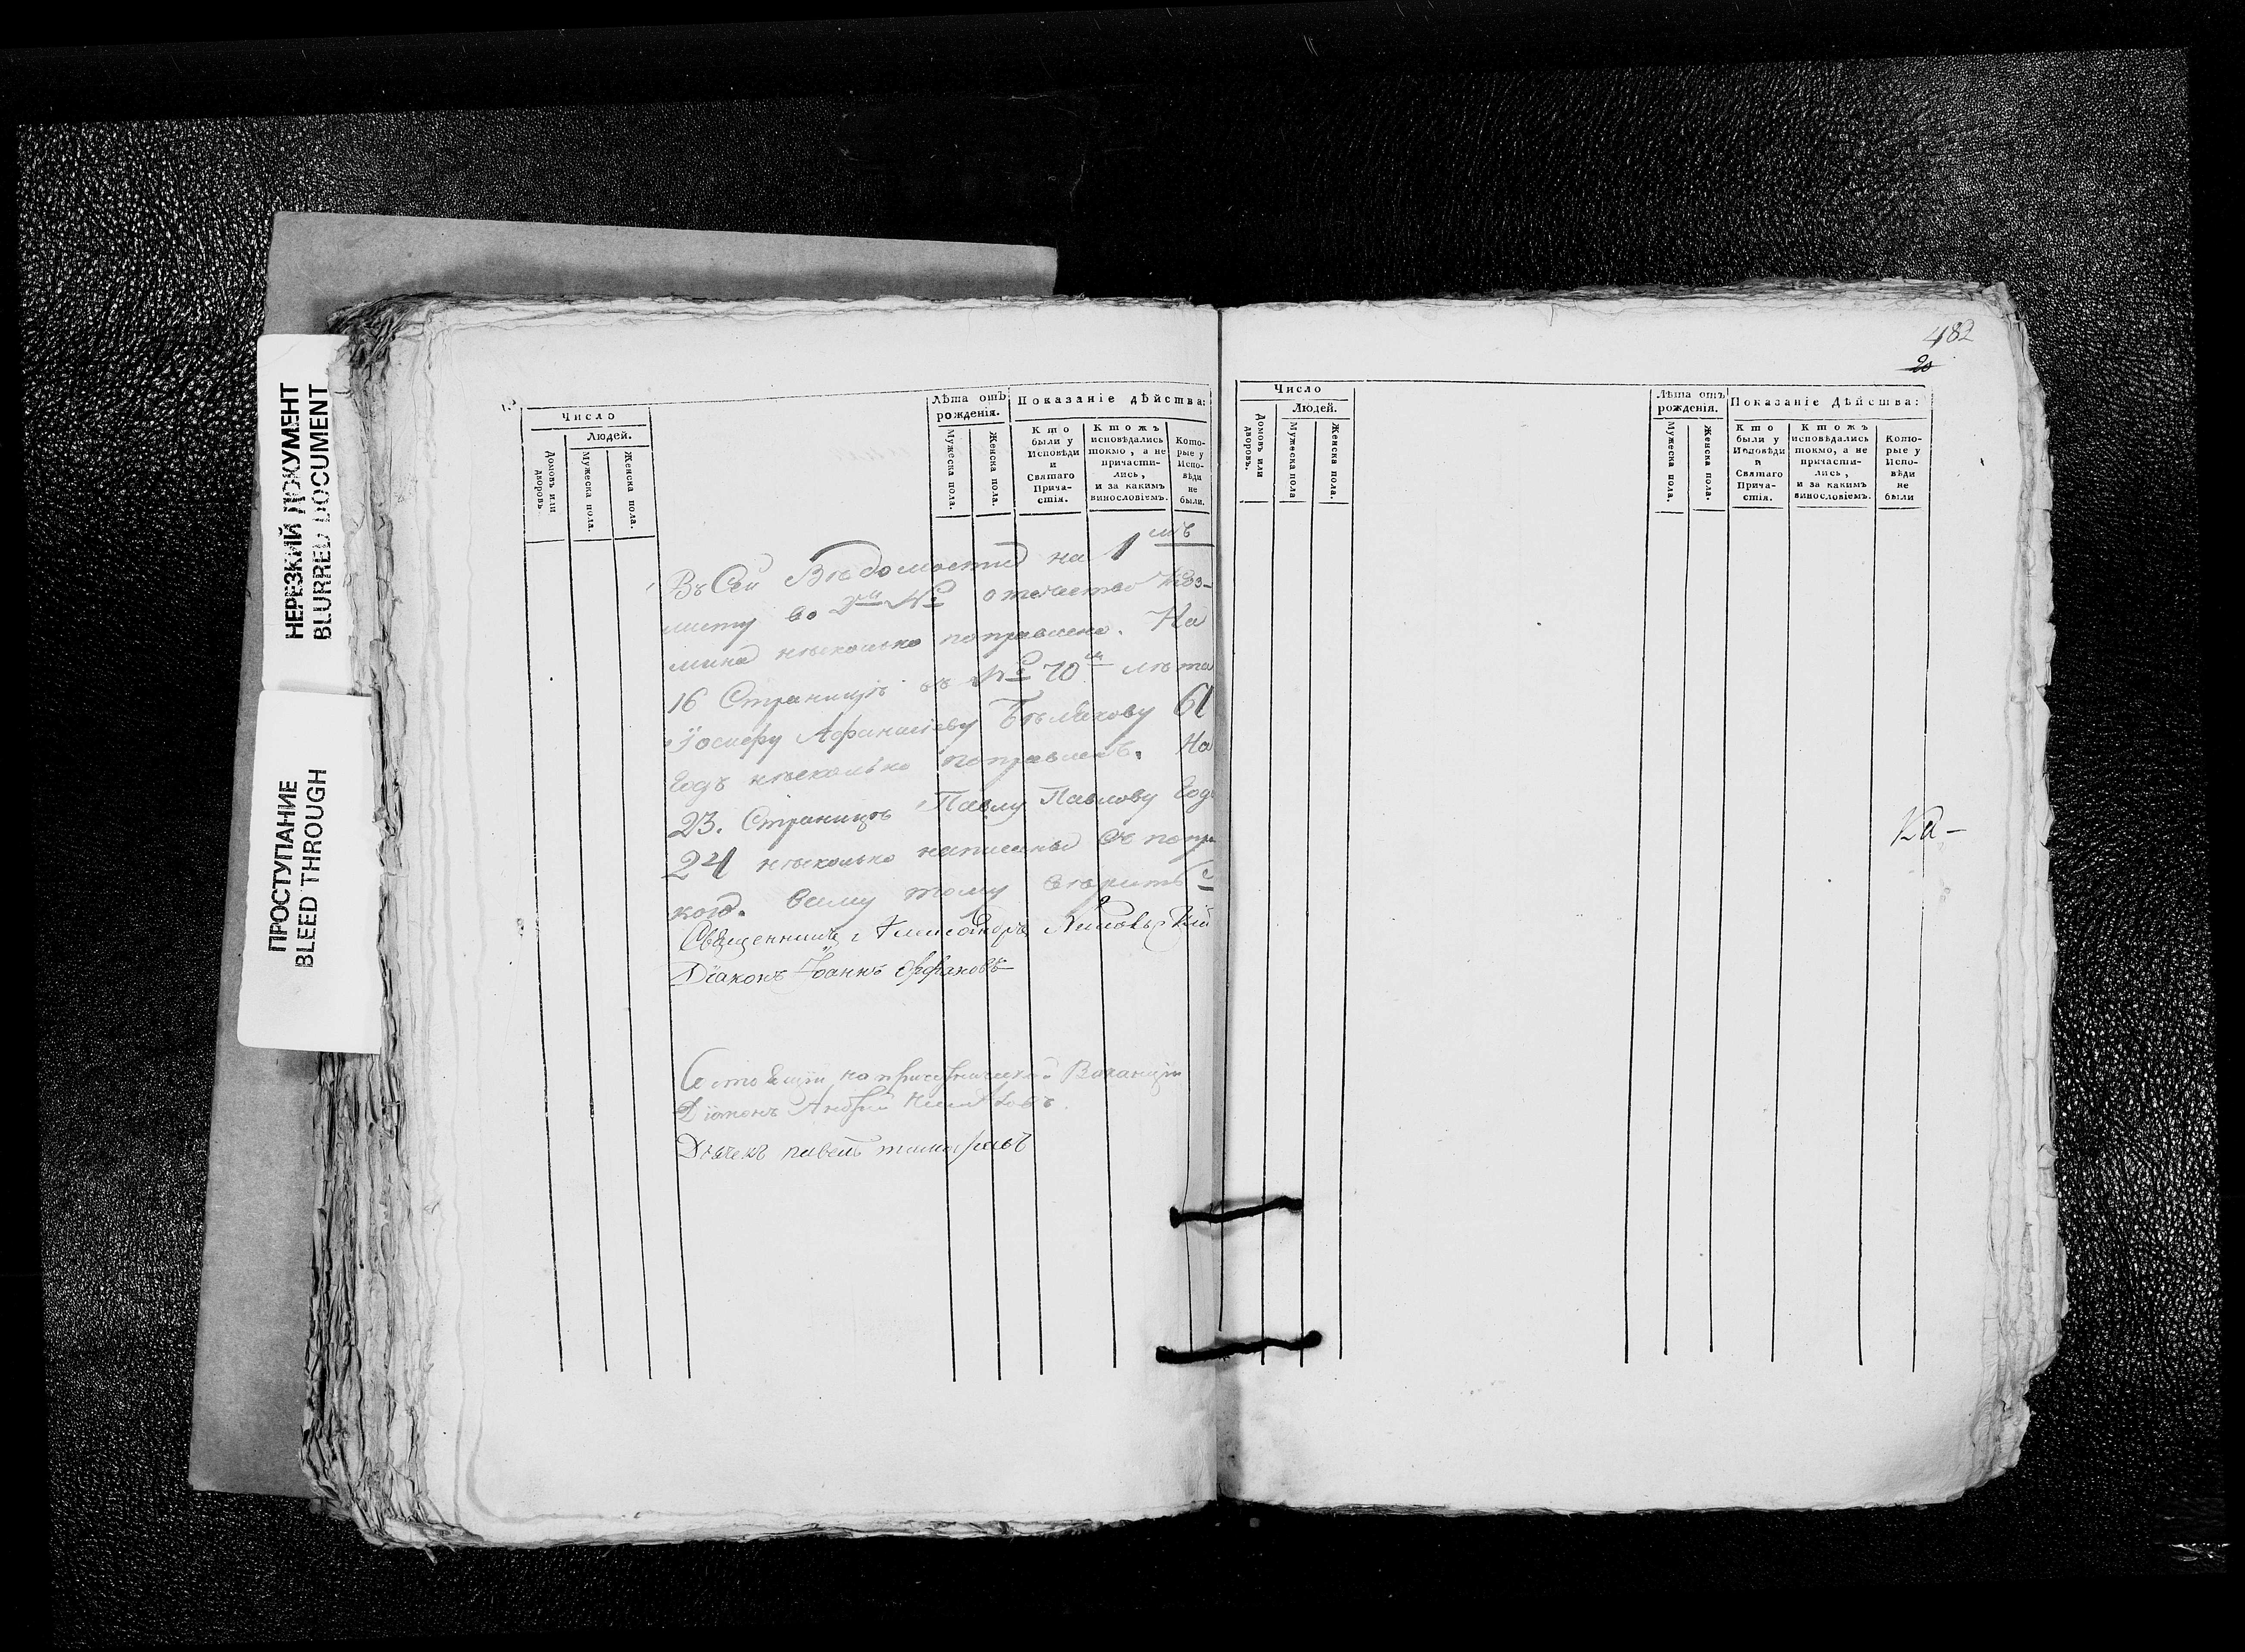 НЕРЕЗКИЙ ДОКУМЕНТ
BLURRED DOCUMENT
ПРОСТУПАНИЕ
BLEED THROUGH
Число
Людей.
Домовъ или дворовъ.
Мужеска пола.
Женска пола.
Лѣта отъ рожденія.
Мужеска пола.
Женска пола.
Показаніе дѣйства:
Кто были у Исповѣди и Святаго Причастія.
Ктожъ исповѣдались токмо, а не причастились, и за какимъ винословіемъ.
Которые у Исповѣди не были.
Въ Сей Вѣдомости на 1мъ
листу во 2мъ № отечество Коз-
мина нѣсколько поправлено. На
16 Страницѣ въ № 70мъ лѣта
Іосифу Афанасіеву Бѣлякову 61
Годъ нѣсколько поправленъ. На
23. Страницѣ Павлу Павлову Годъ
24 нѣсколько написаны съ попра
кою. Сему тому вѣрить
Священникъ Александръ
Діаконъ Іоаннъ
Состоящій на причетнической Ваканціи
Діаконъ Андрей
Дьячекъ павелъ
482
20
Число
Людей.
Домовъ или дворовъ.
Мужеска пола
Женска пола.
Лѣта отъ рожденія.
Мужеска пола.
Женска пола.
Показаніе Дѣйства:
Кто были у Исповѣди и Святаго Причастія.
Ктожъ исповѣдались токмо, а не причастились, и за какимъ винословіемъ.
Которые у Исповѣди не были
Ка-